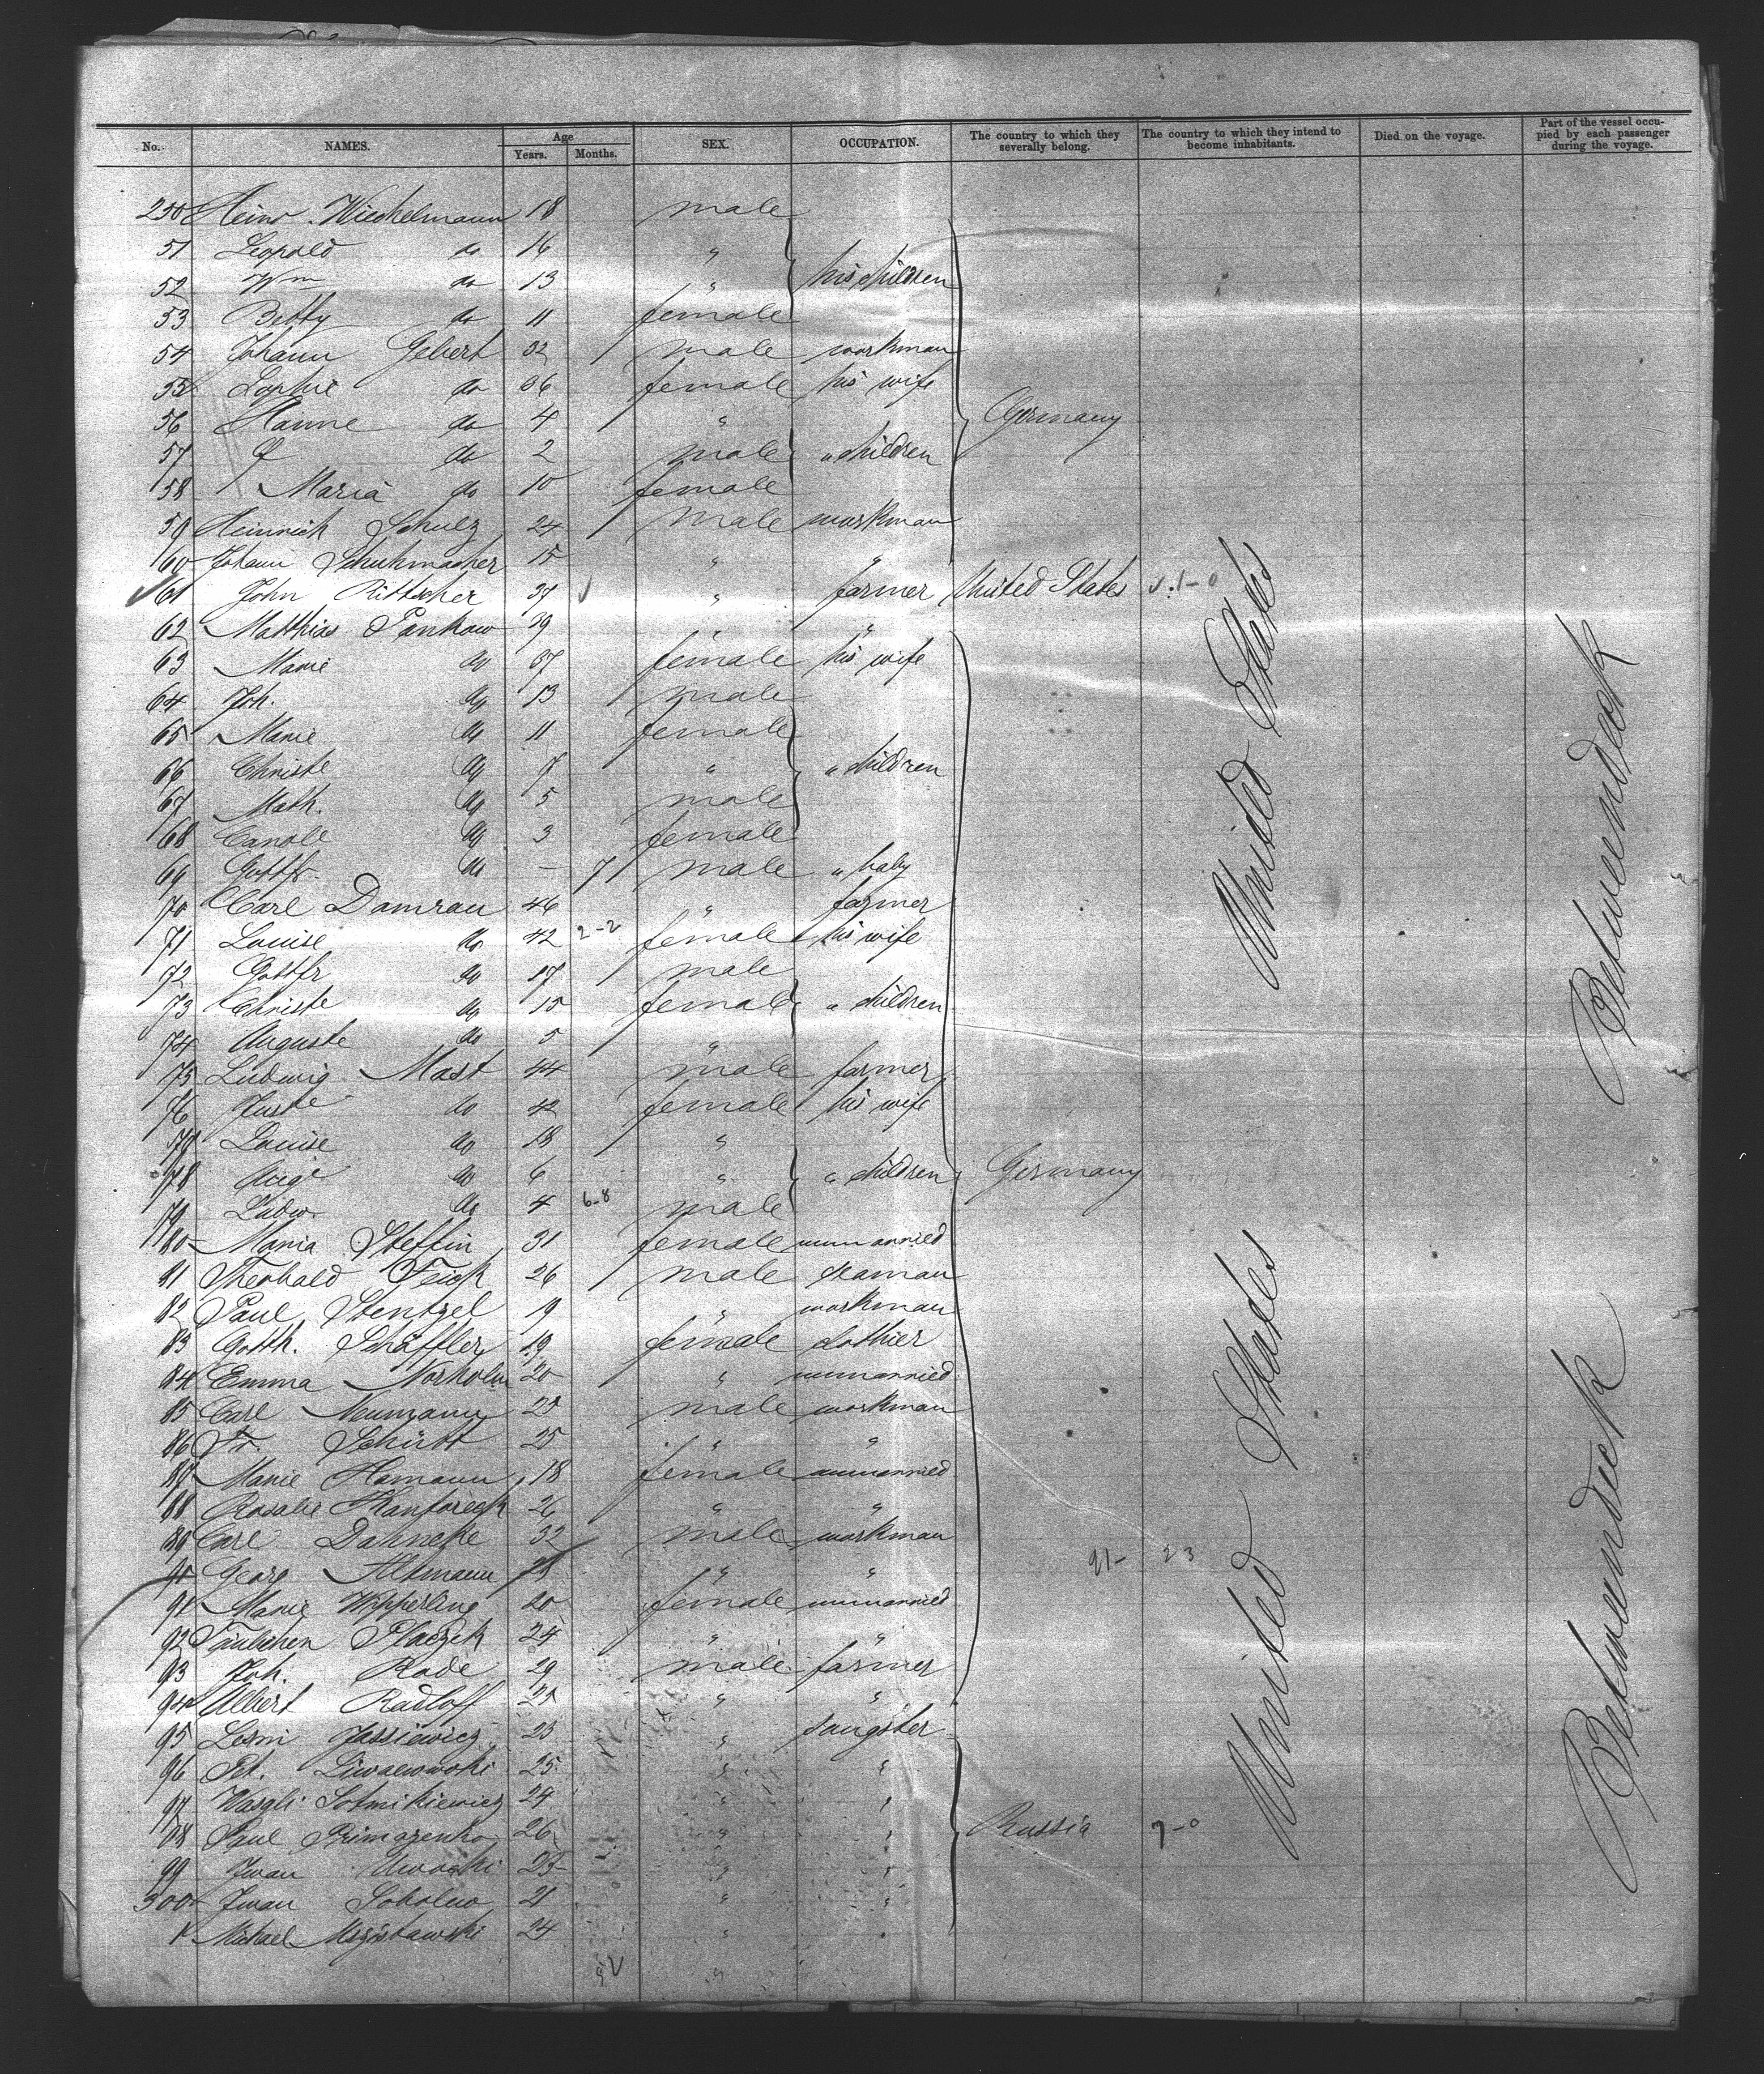 No. NAMES. Age Years. Months. SEX. OCCUPATION. The country to which they severally belong. The country to which they intend to become inhabitants. Died on the voyage. Part of the vessel occupied by each passenger during the voyage.
250 Heinr. Wiechelmann 18 male
51 Leopold do 16 "
52 Wm do 13 " his children
53 Betty do 11 female
54 Johann Gebert 32 male workman
55 Sophie do 36 female his wife
56 Hanne do 4 " Germany
57 do 2 male " children
58 Maria do 10 female
59 Heinrich Schulz 24 male workman
60 Johann Schuhmacher 15 " "
61 John Rittscher 37 " farmer United States
62 Matthias Pankow 39 " "
63 Marie do 37 female his wife
64 Joh. do 13 male
65 Marie do 11 female
66 Christe do 7 " " children
67 Math. do 5 male
68 Carole do 3 female
69 Gottfr. do - 7 male " baby
70 Carl Damrau 46 " farmer
71 Louise do 42 2-2 female his wife
72 Gottfr do 17 male
73 Christe do 15 female " children
74 Auguste do 5 "
75 Ludwig Mast 44 male farmer
76 Juste do 42 female his wife
77 Louise do 18 "
78 Auge do 6 " " children Germany
79 Ludw. do 4 6-8 male
80 Maria Steffin 31 female unmarried
81 Theobald Frick 26 male seaman
82 Paul Stentzel 19 " workman
83 Gotth. Schäffler 19 female clothier
84 Emma Norholm 20 " unmarried
85 Carl Neumann 25 male workman
86 Fr. Schütt 25 " "
87 Marie Hamann 18 female unmarried
88 Rosalie 26 " "
89 Carl Dahncke 32 male workman
90 Georg Altmann " " 91- 23
91 Marie Wipperling 20 female unmarried
92 Täubchen Placzek 24 " "
93 Joh. Rade 29 male farmer
94 Albert Radloff 25 " "
95 Jassiewicz 23 " sangster
96 Pet. 25 " "
97 Sotnikiewicz 24 " "
98 Paul 26 " " Russia 7-0
99 Iwan 23 " "
300 Iwan Sokolow 21 " "
1 Michael 24 " "
United States
United States
Betweendeck
Betweendeck